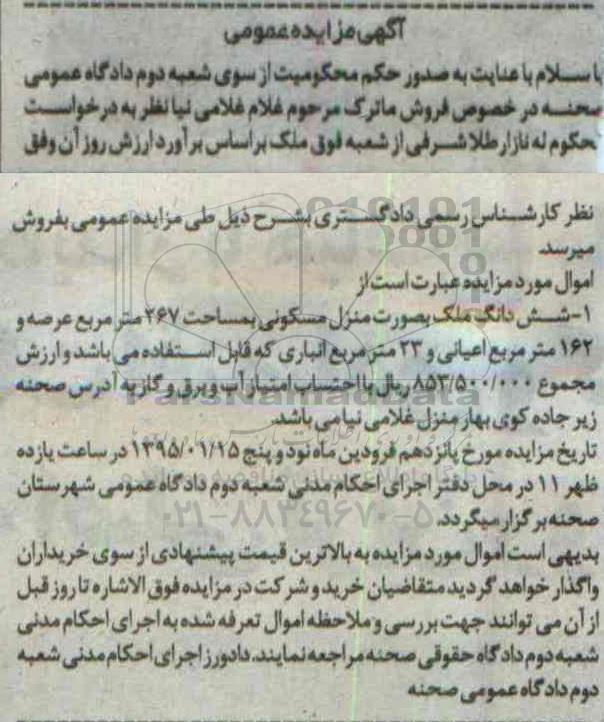 آگهی مزایده عمومی
با سلام با عنایت به صدور حکم محکومیت از سوی شعبه دوم دادگاه عمومی
صحنه در خصوص فروش ماترک مرحوم غلام غلامی نیا نظر به درخواست
محکوم له نازار طلا شرفی از شعبه فوق ملک براساس برآورد ارزش روز آن وفق
نظر کارشناس رسمی دادگستری بشرح ذیل طی مزایده عمومی بفروش
میرسد.
اموال مورد مزایده عبارت است از
۱-شش دانگ ملک بصورت منزل مسکونی بمساحت ۲۶۷ متر مربع عرصه و
۱۶۲ متر مربع اعیانی و ۲۳ متر مربع انباری که قابل استفاده می باشد و ارزش
مجموع ۸۵۳/۵۰۰/۰۰۰ ریال با احتساب امتیاز آب و برق و گاز به آدرس صحنه
زیر جاده کوی بهار منزل غلامی نیا می باشد.
تاریخ مزایده مورخ پانزدهم فرودین ماه نود و پنج ۱۳۹۵/۰۱/۱۵ در ساعت یازده
ظهر ۱۱ در محل دفتر اجرای احکام مدنی شعبه دوم دادگاه عمومی شهرستان
صحنه برگزار میگردد.
بدیهی است اموال مورد مزایده به بالاترین قیمت پیشنهادی از سوی خریداران
واگذار خواهد گردید متقاضیان خرید و شرکت در مزایده فوق الاشاره تا روز قبل
از آن می توانند جهت بررسی و ملاحظه اموال تعرفه شده به اجرای احکام مدنی
شعبه دوم دادگاه حقوقی صحنه مراجعه نمایند. دادورز اجرای احکام مدنی شعبه
دوم دادگاه عمومی صحنه
ParsNamadData
۰۲۱-۸۸۳۴۹۶۷۰-۵